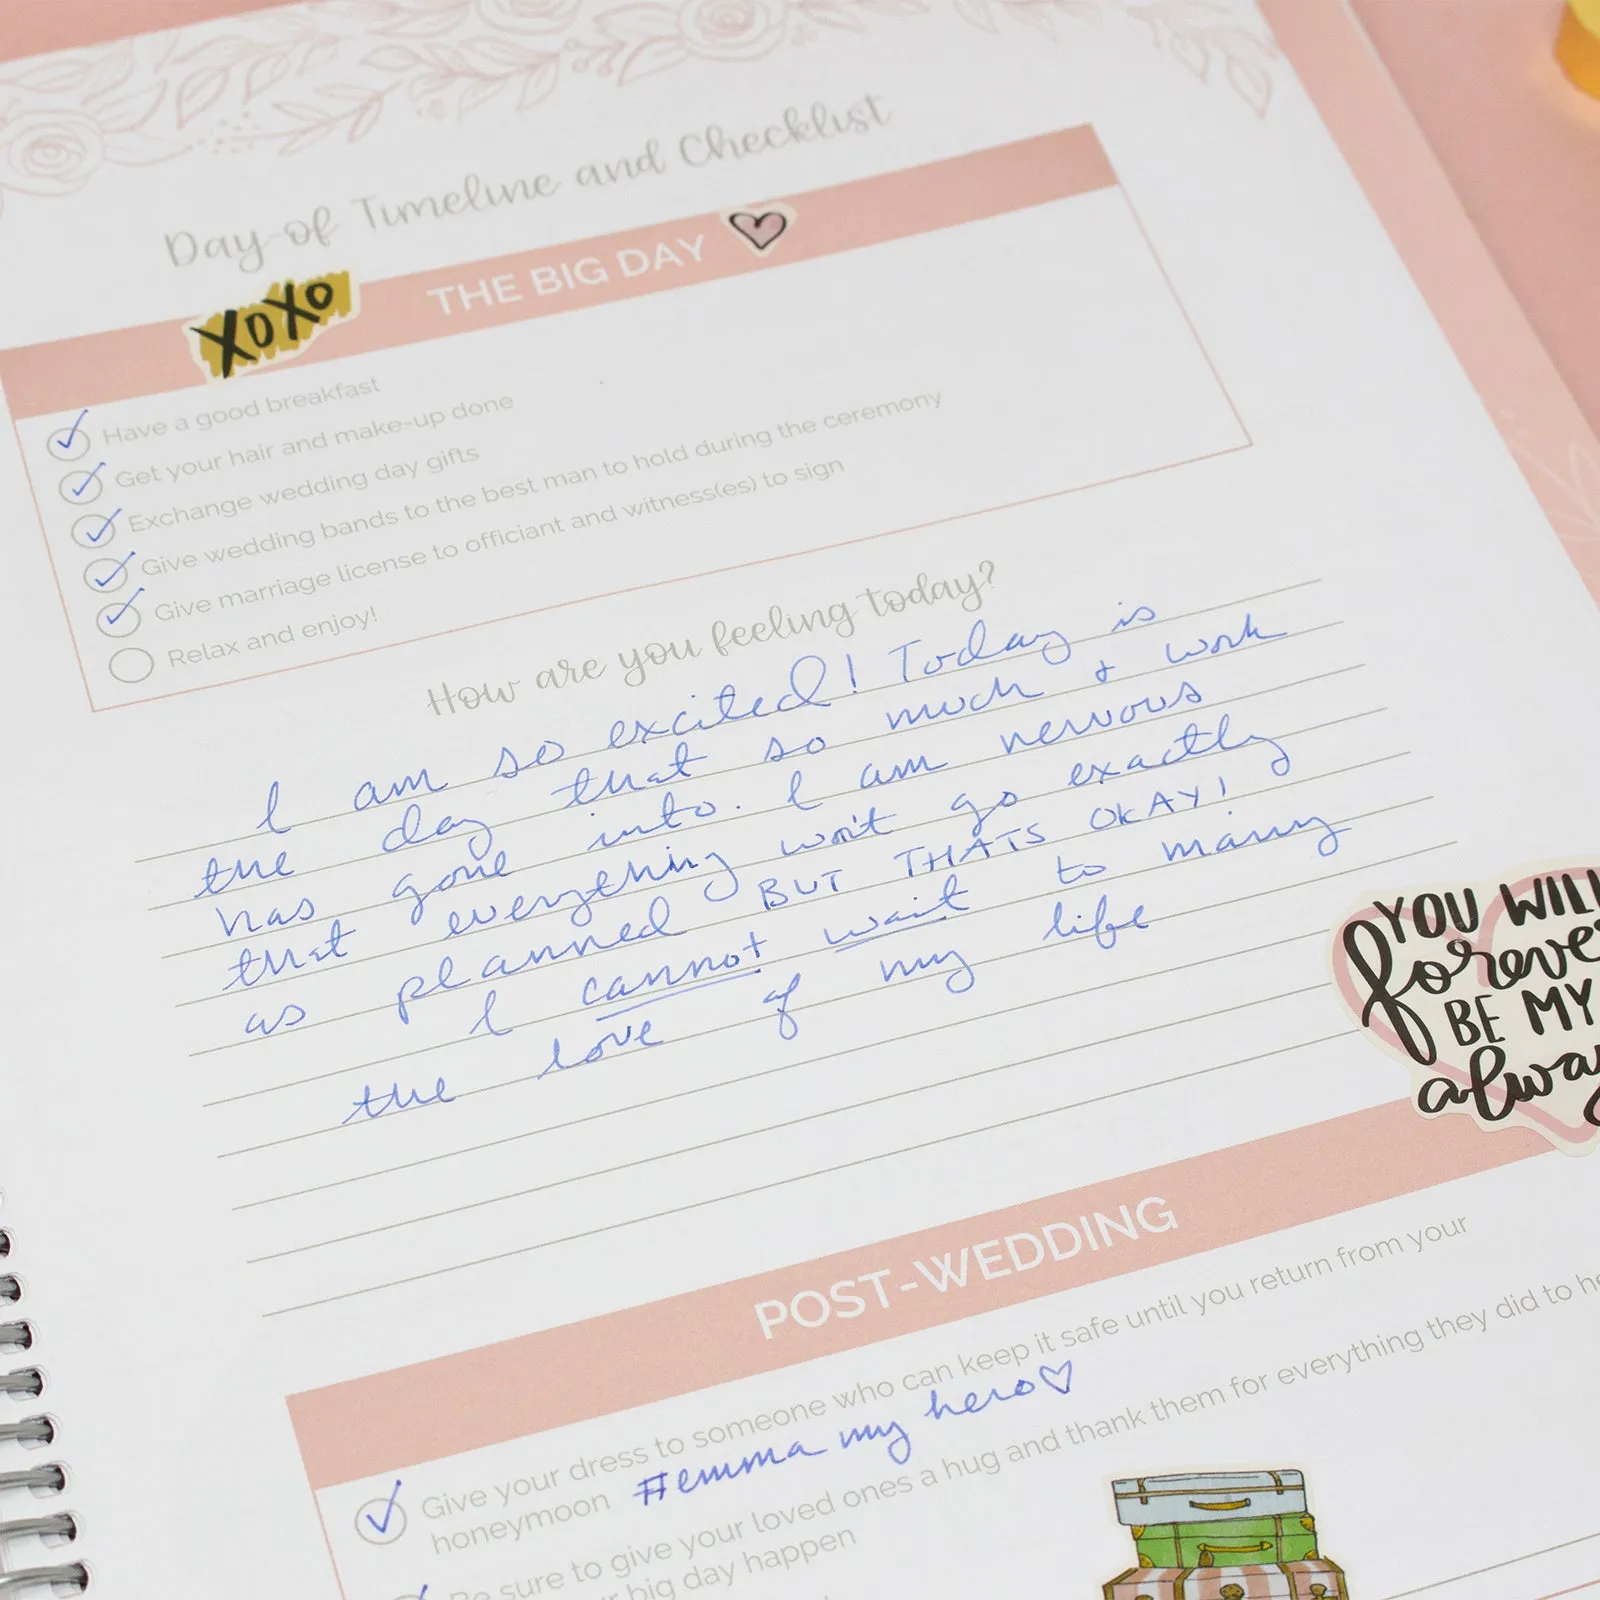 Day-of Timeline and Checklist
THE BIG DAY
XOXO
Have a good breakfast
Get your hair and make-up done
Exchange wedding day gifts
Give wedding bands to the best man to hold during the ceremony
Give marriage license to officiant and witness(es) to sign
Relax and enjoy!
How are you feeling today?
I am so excited! Today is
the day that so much + work
has gone into. I am nervous
that everything won't go exactly
as planned BUT THATS OKAY!
I cannot wait to marry
the love of my life
YOU WILL
forever
BE MY
alway
POST-WEDDING
Give your dress to someone who can keep it safe until you return from your
honeymoon #emma my hero♡
Be sure to give your loved ones a hug and thank them for everything they did to
big day happen